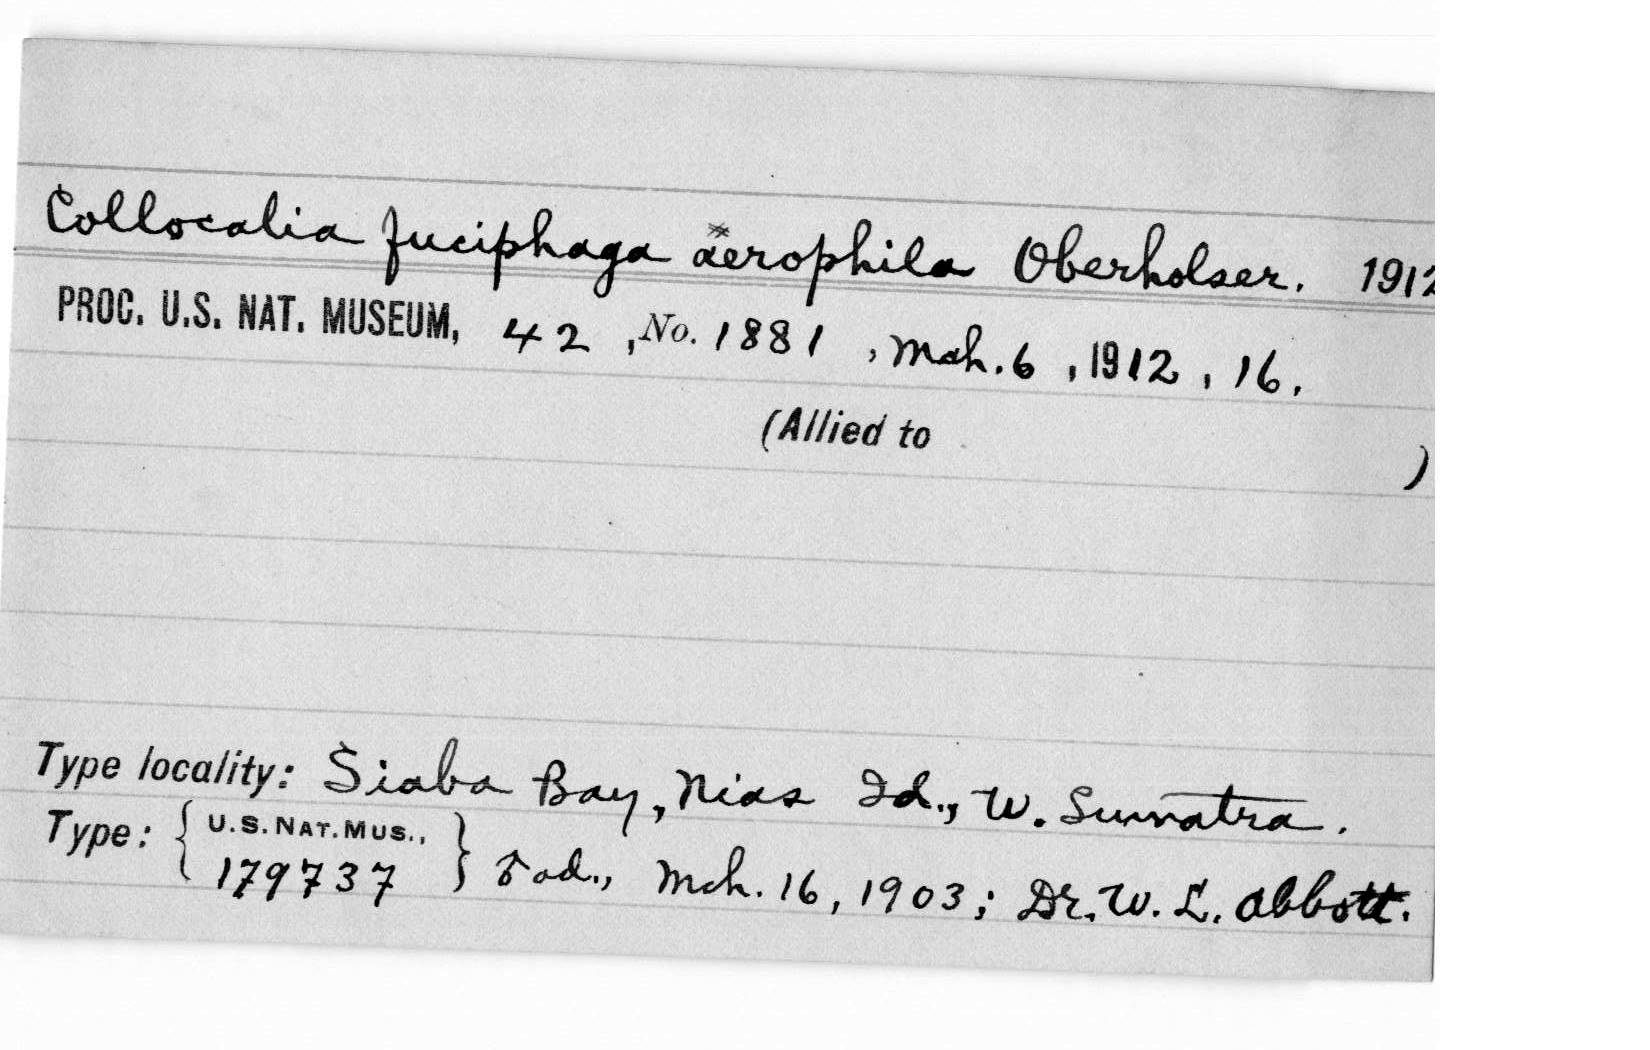 Collocalia fuciphaga aerophila Oberholser. 1912
PROC. U.S. NAT. MUSEUM, 42, No. 1881, Mch. 6, 1912, 16.
(Allied to )
Type locality: Siaba Bay, Nias Id., W. Sumatra.
Type: { U.S. NAT. MUS.,
179737 } ad., Mch. 16, 1903; Dr. W. L. Abbott.